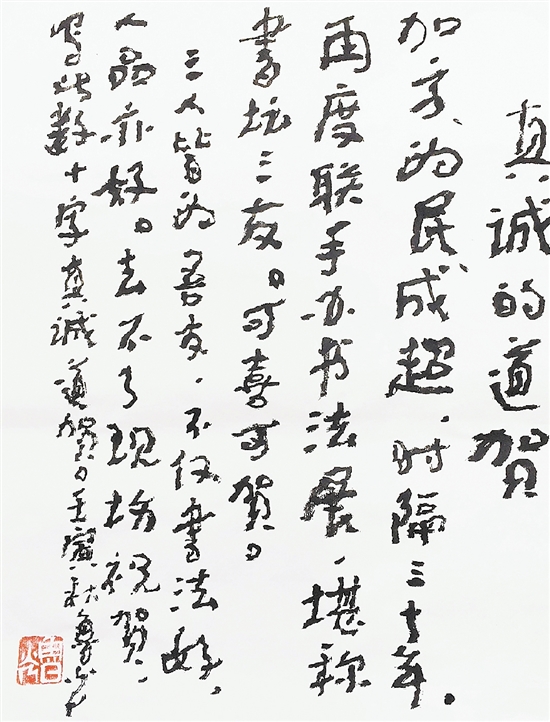 真诚的道贺
加方为民成超，时隔三十年，
两度联手办书法展，堪称
書坛三友。可喜可贺。
三人皆为吾友，不仅書法好，
人品亦好。去不了现场祝贺，
写此数十字真诚道贺。王